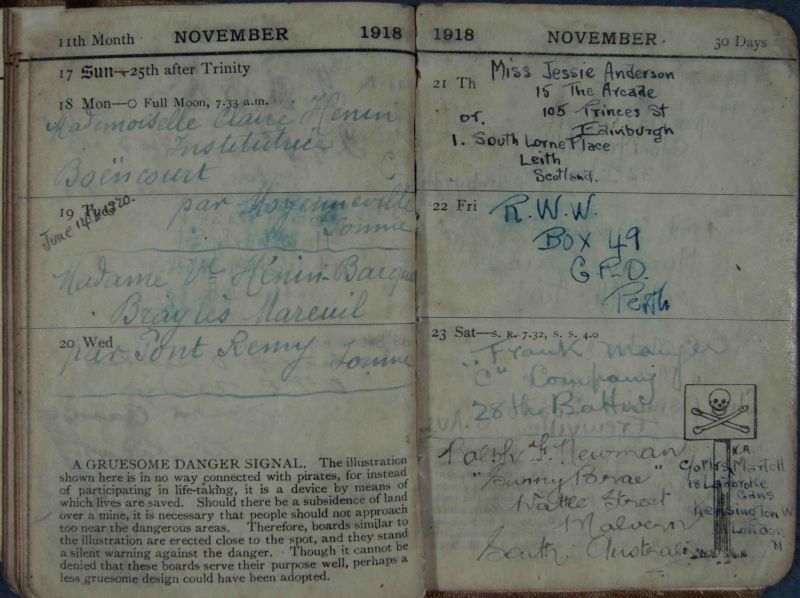 11th Month NOVEMBER 1918
17 Sun—25th after Trinity
18 Mon—O Full Moon, 7.33 a.m.
Mademoiselle Claire Henin
Institutrice
Boëncourt
19 Tues
par Moyenneville
Somme
June 14th 1920.
Madame Ve Henin-Bacquet
Bray les Mareuil
20 Wed
par Pont Remy Somme
A GRUESOME DANGER SIGNAL. The illustration
shown here is in no way connected with pirates, for instead
of participating in life-taking, it is a device by means of
which lives are saved. Should there be a subsidence of land
over a mine, it is necessary that people should not approach
too near the dangerous areas. Therefore, boards similar to
the illustration are erected close to the spot, and they stand
a silent warning against the danger. Though it cannot be
denied that these boards serve their purpose well, perhaps a
less gruesome design could have been adopted.
1918 NOVEMBER. 30 Days
21 Th Miss Jessie Anderson
15 The Arcade
or. 105 Princes St
Edinburgh
1. South Lorne Place
Leith
Scotland.
22 Fri R.W.W.
Box 49
G.P.O.
Perth
23 Sat—S. R. 7.32, S. S. 4.0
Frank Mauger
"C" Company
28th Battn
Ralph F. Newman
"Sunny Brae"
Wattle Street
Malvern
South Australia
c/o Mrs Martell
18 Ladbroke
Gdns
Kensington W
London